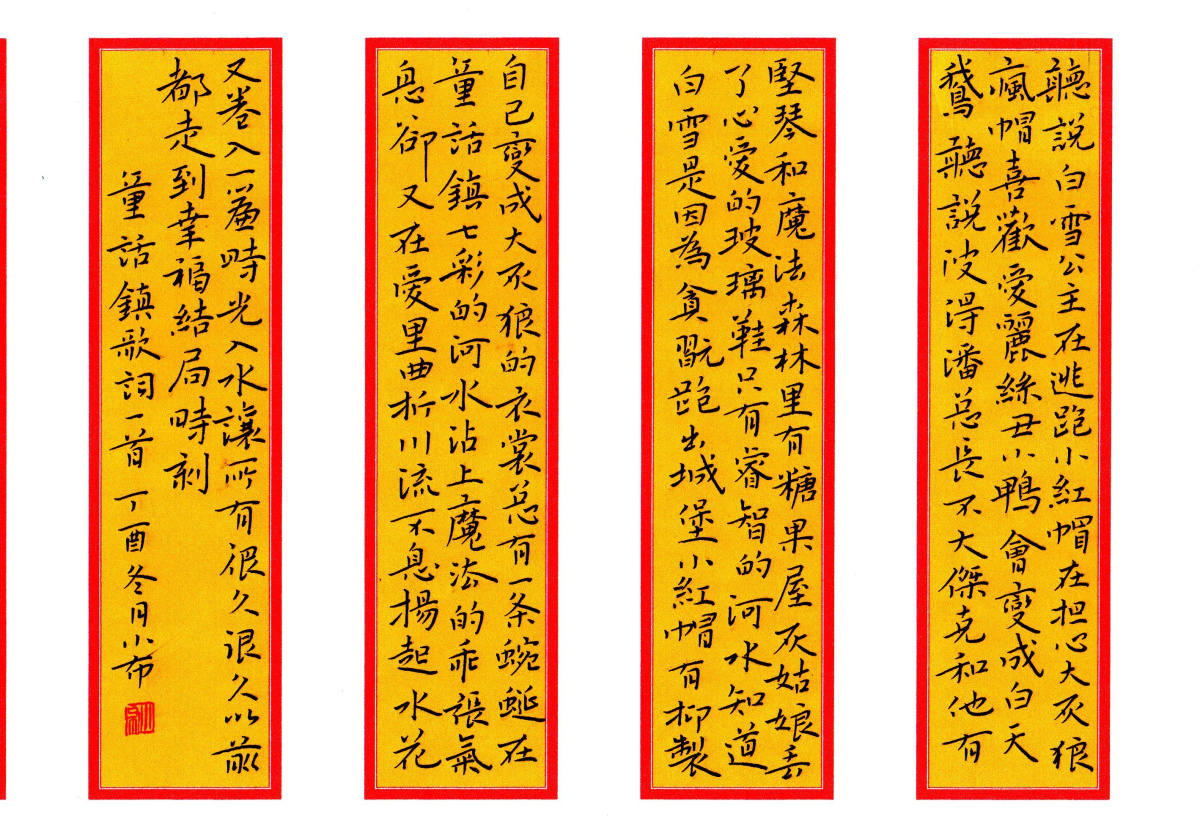 聽說白雪公主在逃跑小紅帽在担心大灰狼
瘋帽喜歡愛麗絲丑小鴨會變成白天
鵝聽說彼得潘总長不大傑克和他有
堅琴和魔法森林里有糖果屋灰姑娘丢
了心愛的玻璃鞋只有睿智的河水知道
白雪是因為貪翫跑出城堡小紅帽有抑製
自己變成大灰狼的衣裳总有一条蜿蜒在
童話鎮七彩的河水沾上魔法的乖張氣
息卻又在愛里曲折川流不息揚起水花
又卷入一簾時光入水讓所有很久很久以前
都走到幸福結局時刻
童話鎮歌詞一首丁酉冬月小布